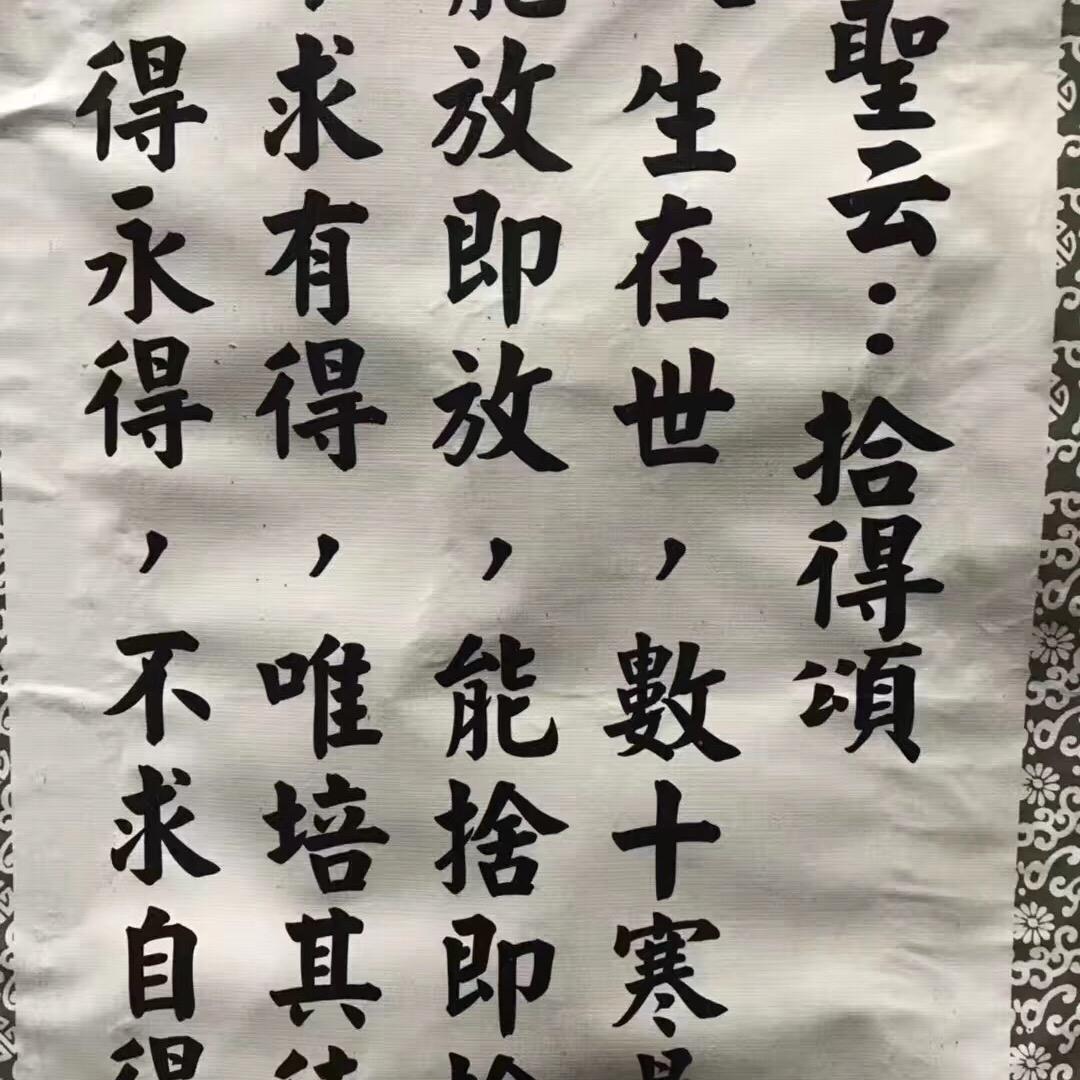 聖云：拾得頌
生在世，數十寒
放即放，能捨即
求有得，唯培其
得永得，不求自得